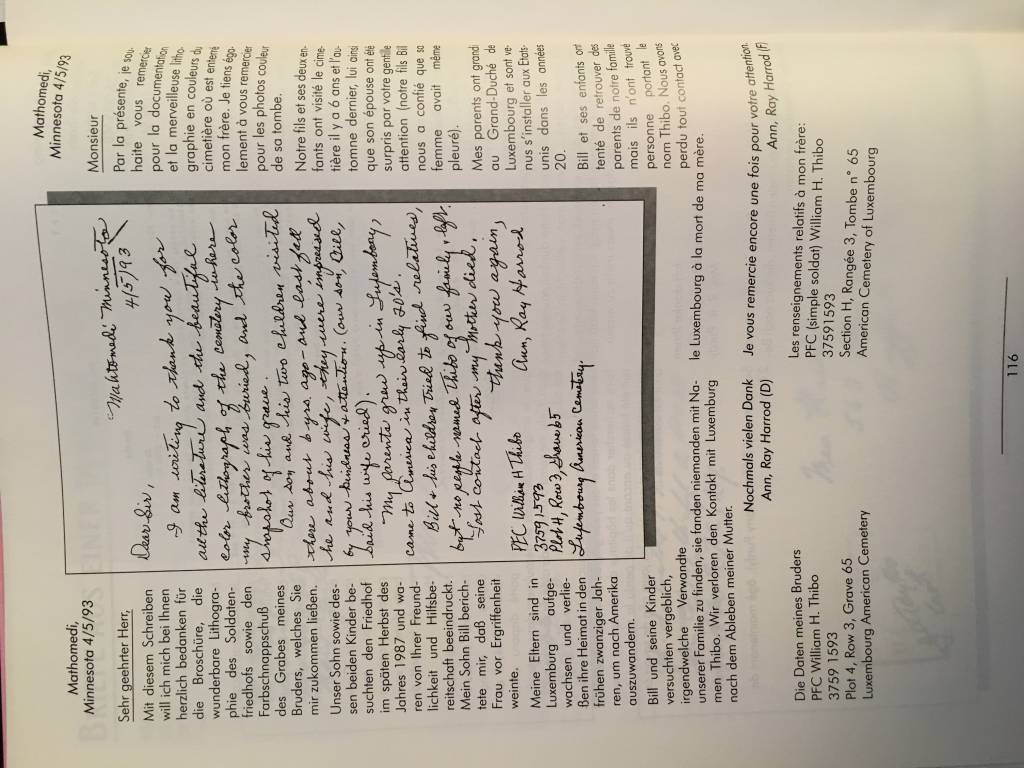 Mathomedi,
Minnesota 4/5/93
Sehr geehrter Herr,
Mit diesem Schreiben
will ich mich bei Ihnen
herzlich bedanken für
die Broschüre, die
wunderbare Lithogra-
phie des Soldaten-
friedhofs sowie den
Farbschnappschuß
des Grabes meines
Bruders, welches Sie
mir zukommen ließen.
Unser Sohn sowie des-
sen beiden Kinder be-
suchten den Friedhof
im späten Herbst des
Jahres 1987 und wa-
ren von Ihrer Freund-
lichkeit und Hilfsbe-
reitschaft beeindruckt.
Mein Sohn Bill berich-
tete mir, daß seine
Frau vor Ergriffenheit
weinte.
Meine Eltern sind in
Luxemburg aufge-
wachsen und verlie-
ßen ihre Heimat in den
frühen zwanziger Jah-
ren, um nach Amerika
auszuwandern.
Bill und seine Kinder
versuchten vergeblich,
irgendwelche Verwandte
unserer Familie zu finden, sie fanden niemanden mit Na-
men Thibo. Wir verloren den Kontakt mit Luxemburg
nach dem Ableben meiner Mutter.
Nochmals vielen Dank
Ann, Ray Harrod (D)
Die Daten meines Bruders
PFC William H. Thibo
3759 1593
Plot 4, Row 3, Grave 65
Luxembourg American Cemetery
Mahtomedi Minnesota
4/5/93
Dear Sir,
I am writing to thank you for
all the literature and the beautiful
color lithograph of the cemetery where
my brother was buried, and the color
snapshot of his grave.
Our son and his two children visited
there about 6 yrs. ago - and last fall
he and his wife, they were impressed
by your kindness & attention. (our son, Bill,
said his wife cried).
My parents grew up in Luxembourg,
came to America in their early 20's.
Bill & his children tried to find relatives,
but no people named Thibo of our family left.
Lost contact after my Mother died.
Thank you again,
Ann, Ray Harrod
PFC William H Thibo
37591593
Plot H, Row 3, Grave 65
Luxembourg American Cemetery.
Mathomedi,
Minnesota 4/5/93
Monsieur
Par la présente, je sou-
haite vous remercier
pour la documentation
et la merveilleuse litho-
graphie en couleurs du
cimetière où est enterré
mon frère. Je tiens éga-
lement à vous remercier
pour les photos couleur
de sa tombe.
Notre fils et ses deux en-
fants ont visité le cime-
tière il y a 6 ans et l'au-
tomne dernier, lui ainsi
que son épouse ont été
surpris par votre gentille
attention (notre fils Bill
nous a confié que sa
femme avait même
pleuré).
Mes parents ont grandi
au Grand-Duché de
Luxembourg et sont ve-
nus s'installer aux Etats-
unis dans les années
20.
Bill et ses enfants ont
tenté de retrouver des
parents de notre famille
mais ils n'ont trouvé
personne portant le
nom Thibo. Nous avons
perdu tout contact avec
le Luxembourg à la mort de ma mère.
Je vous remercie encore une fois pour votre attention.
Ann, Ray Harrod (F)
Les renseignements relatifs à mon frère:
PFC (simple soldat) William H. Thibo
37591593
Section H, Rangée 3, Tombe n° 65
American Cemetery of Luxembourg
116